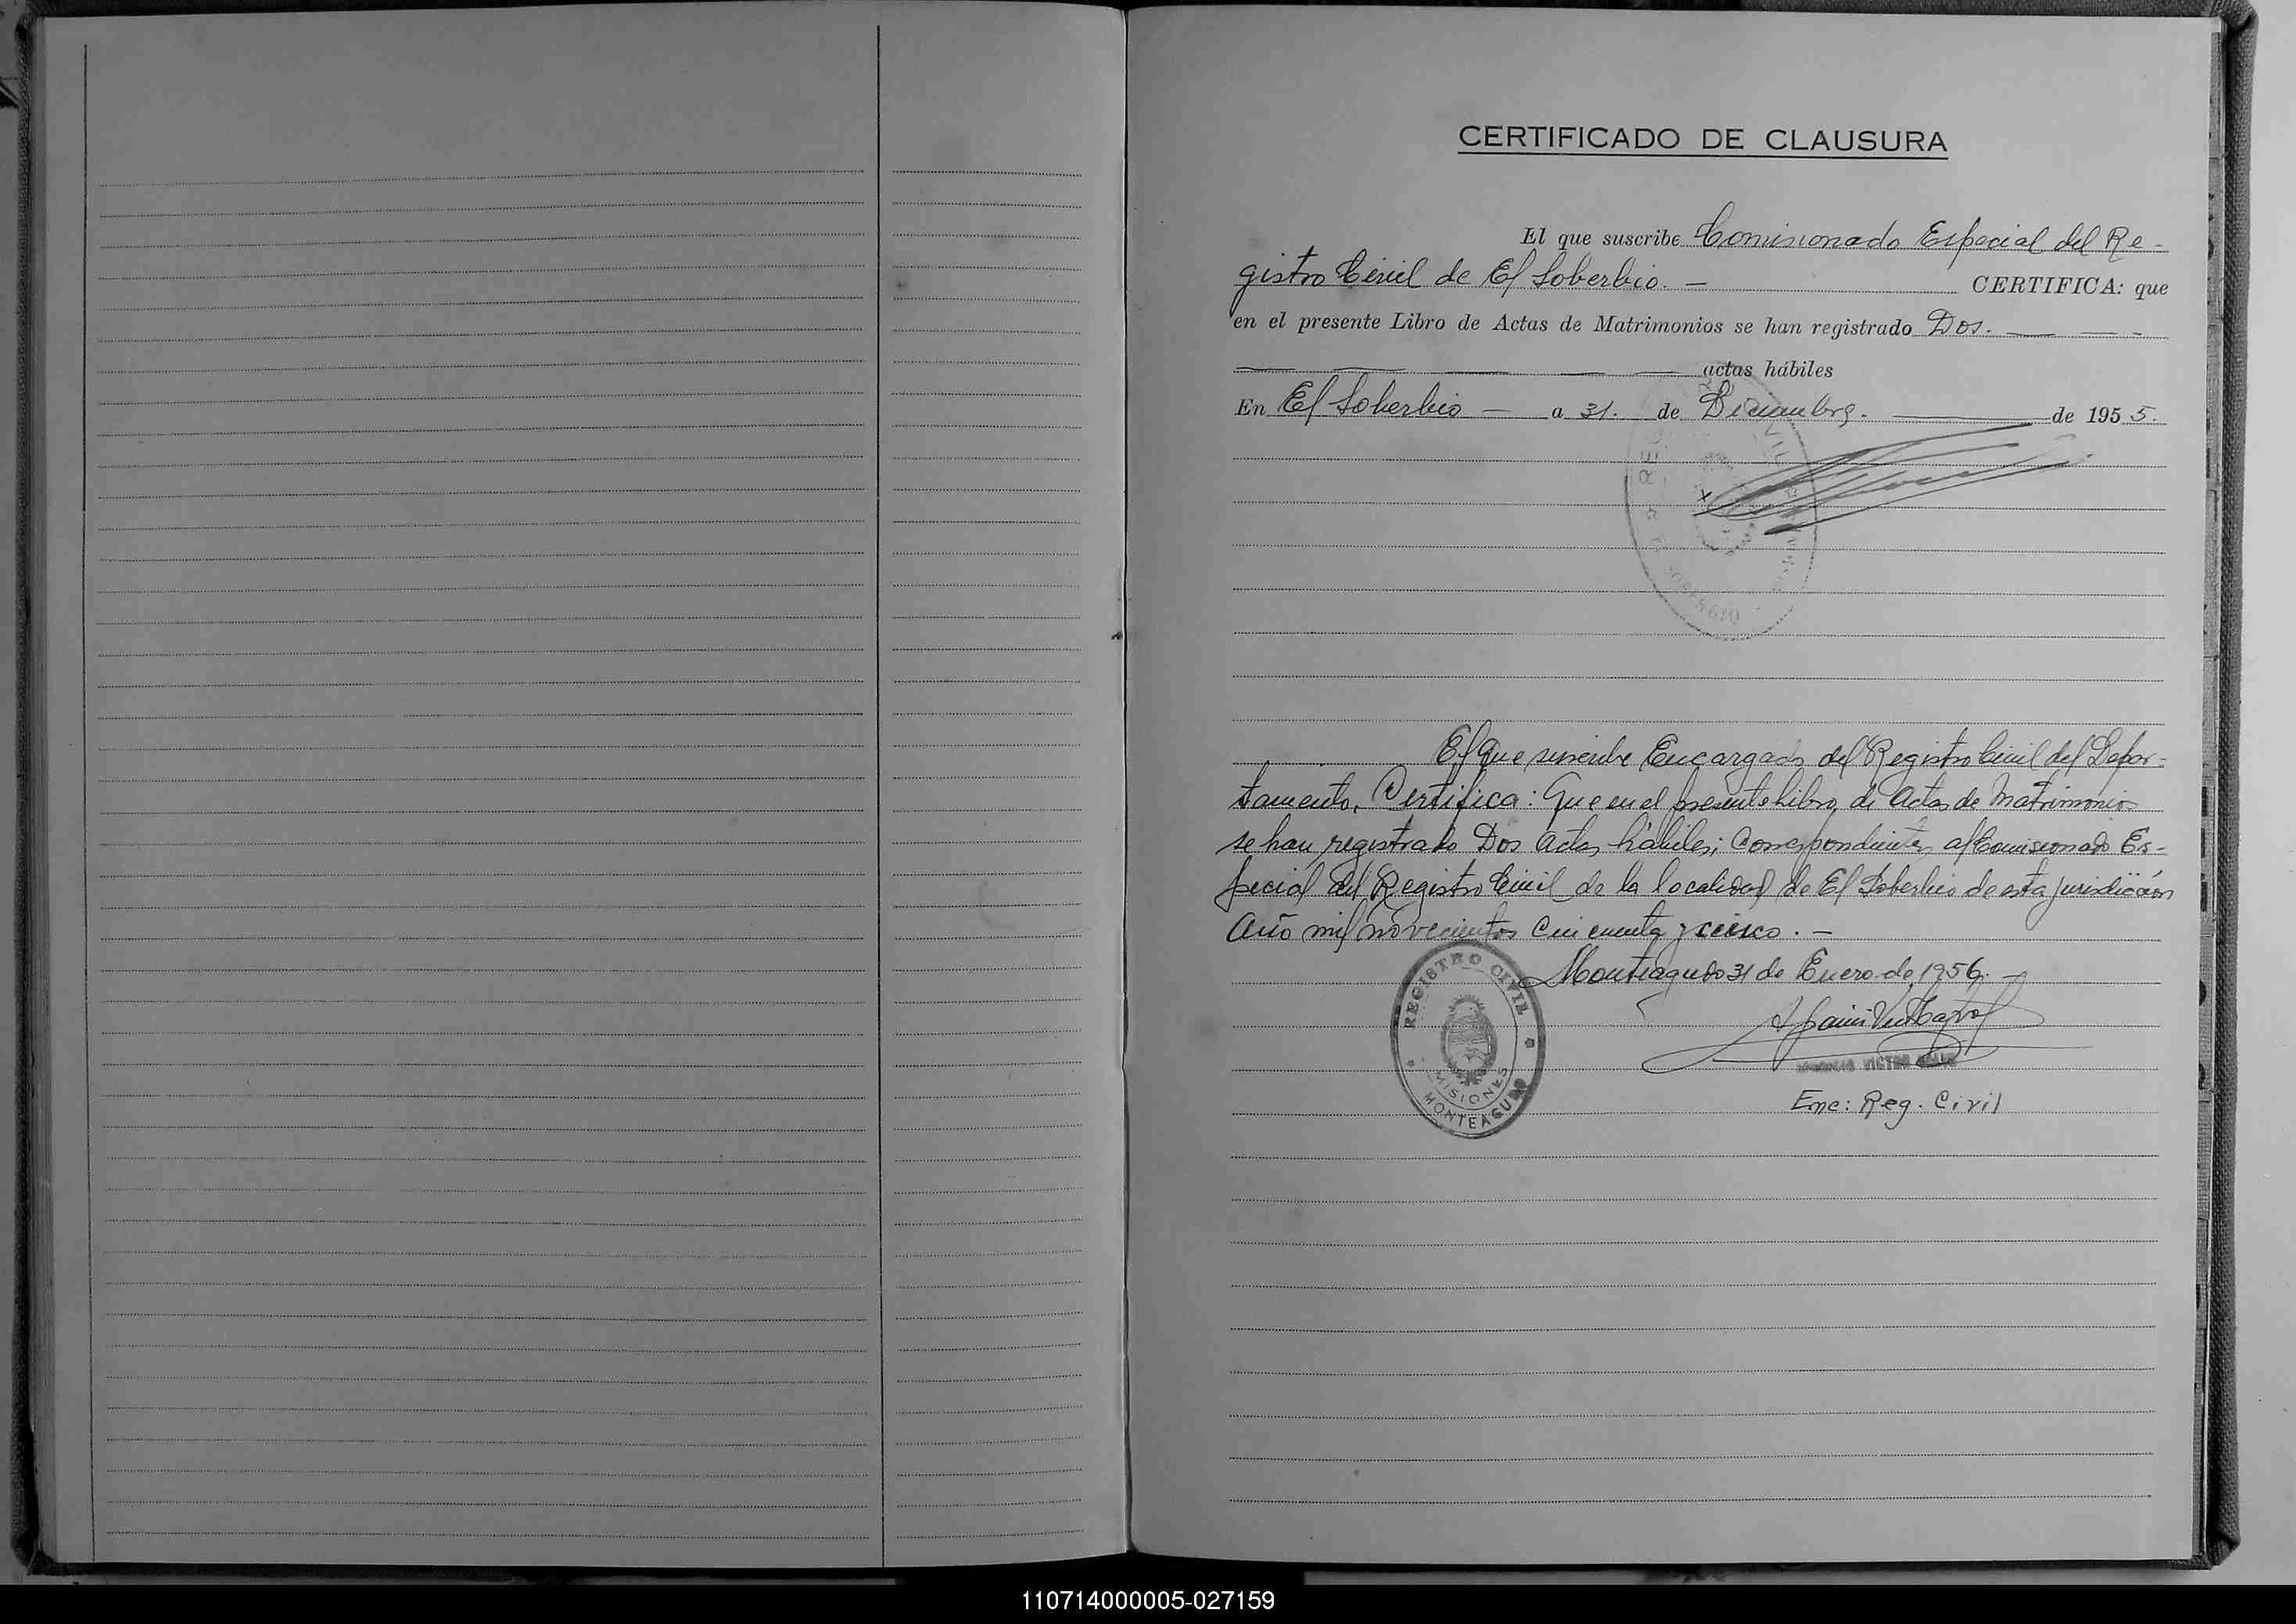 CERTIFICADO DE CLAUSURA
El que suscribe Comisionado Especial del Re-
gistro Civil de El Soberbio. — CERTIFICA: que
en el presente Libro de Actas de Matrimonios se han registrado Dos. — — -
— — — — — actas hábiles
En El Soberbio — a 31. de Diciembre. — de 1955.
REGISTRO CIVIL
EL SOBERBIO
El que suscribe Encargado del Registro Civil del Depar-
tamento, Certifica: Que en el presente Libro de Actas de Matrimonios
se han registrado Dos Actas hábiles; Correspondientes al Comisionado Es-
pecial del Registro Civil de la localidad de El Soberbio de esta jurisdicción
Año mil novecientos cincuenta y cinco. —
Monteagudo 31 de Enero de 1956. —
REGISTRO CIVIL
MISIONES
MONTEAGUDO
VICTOR
Enc: Reg. Civil
110714000005-027159